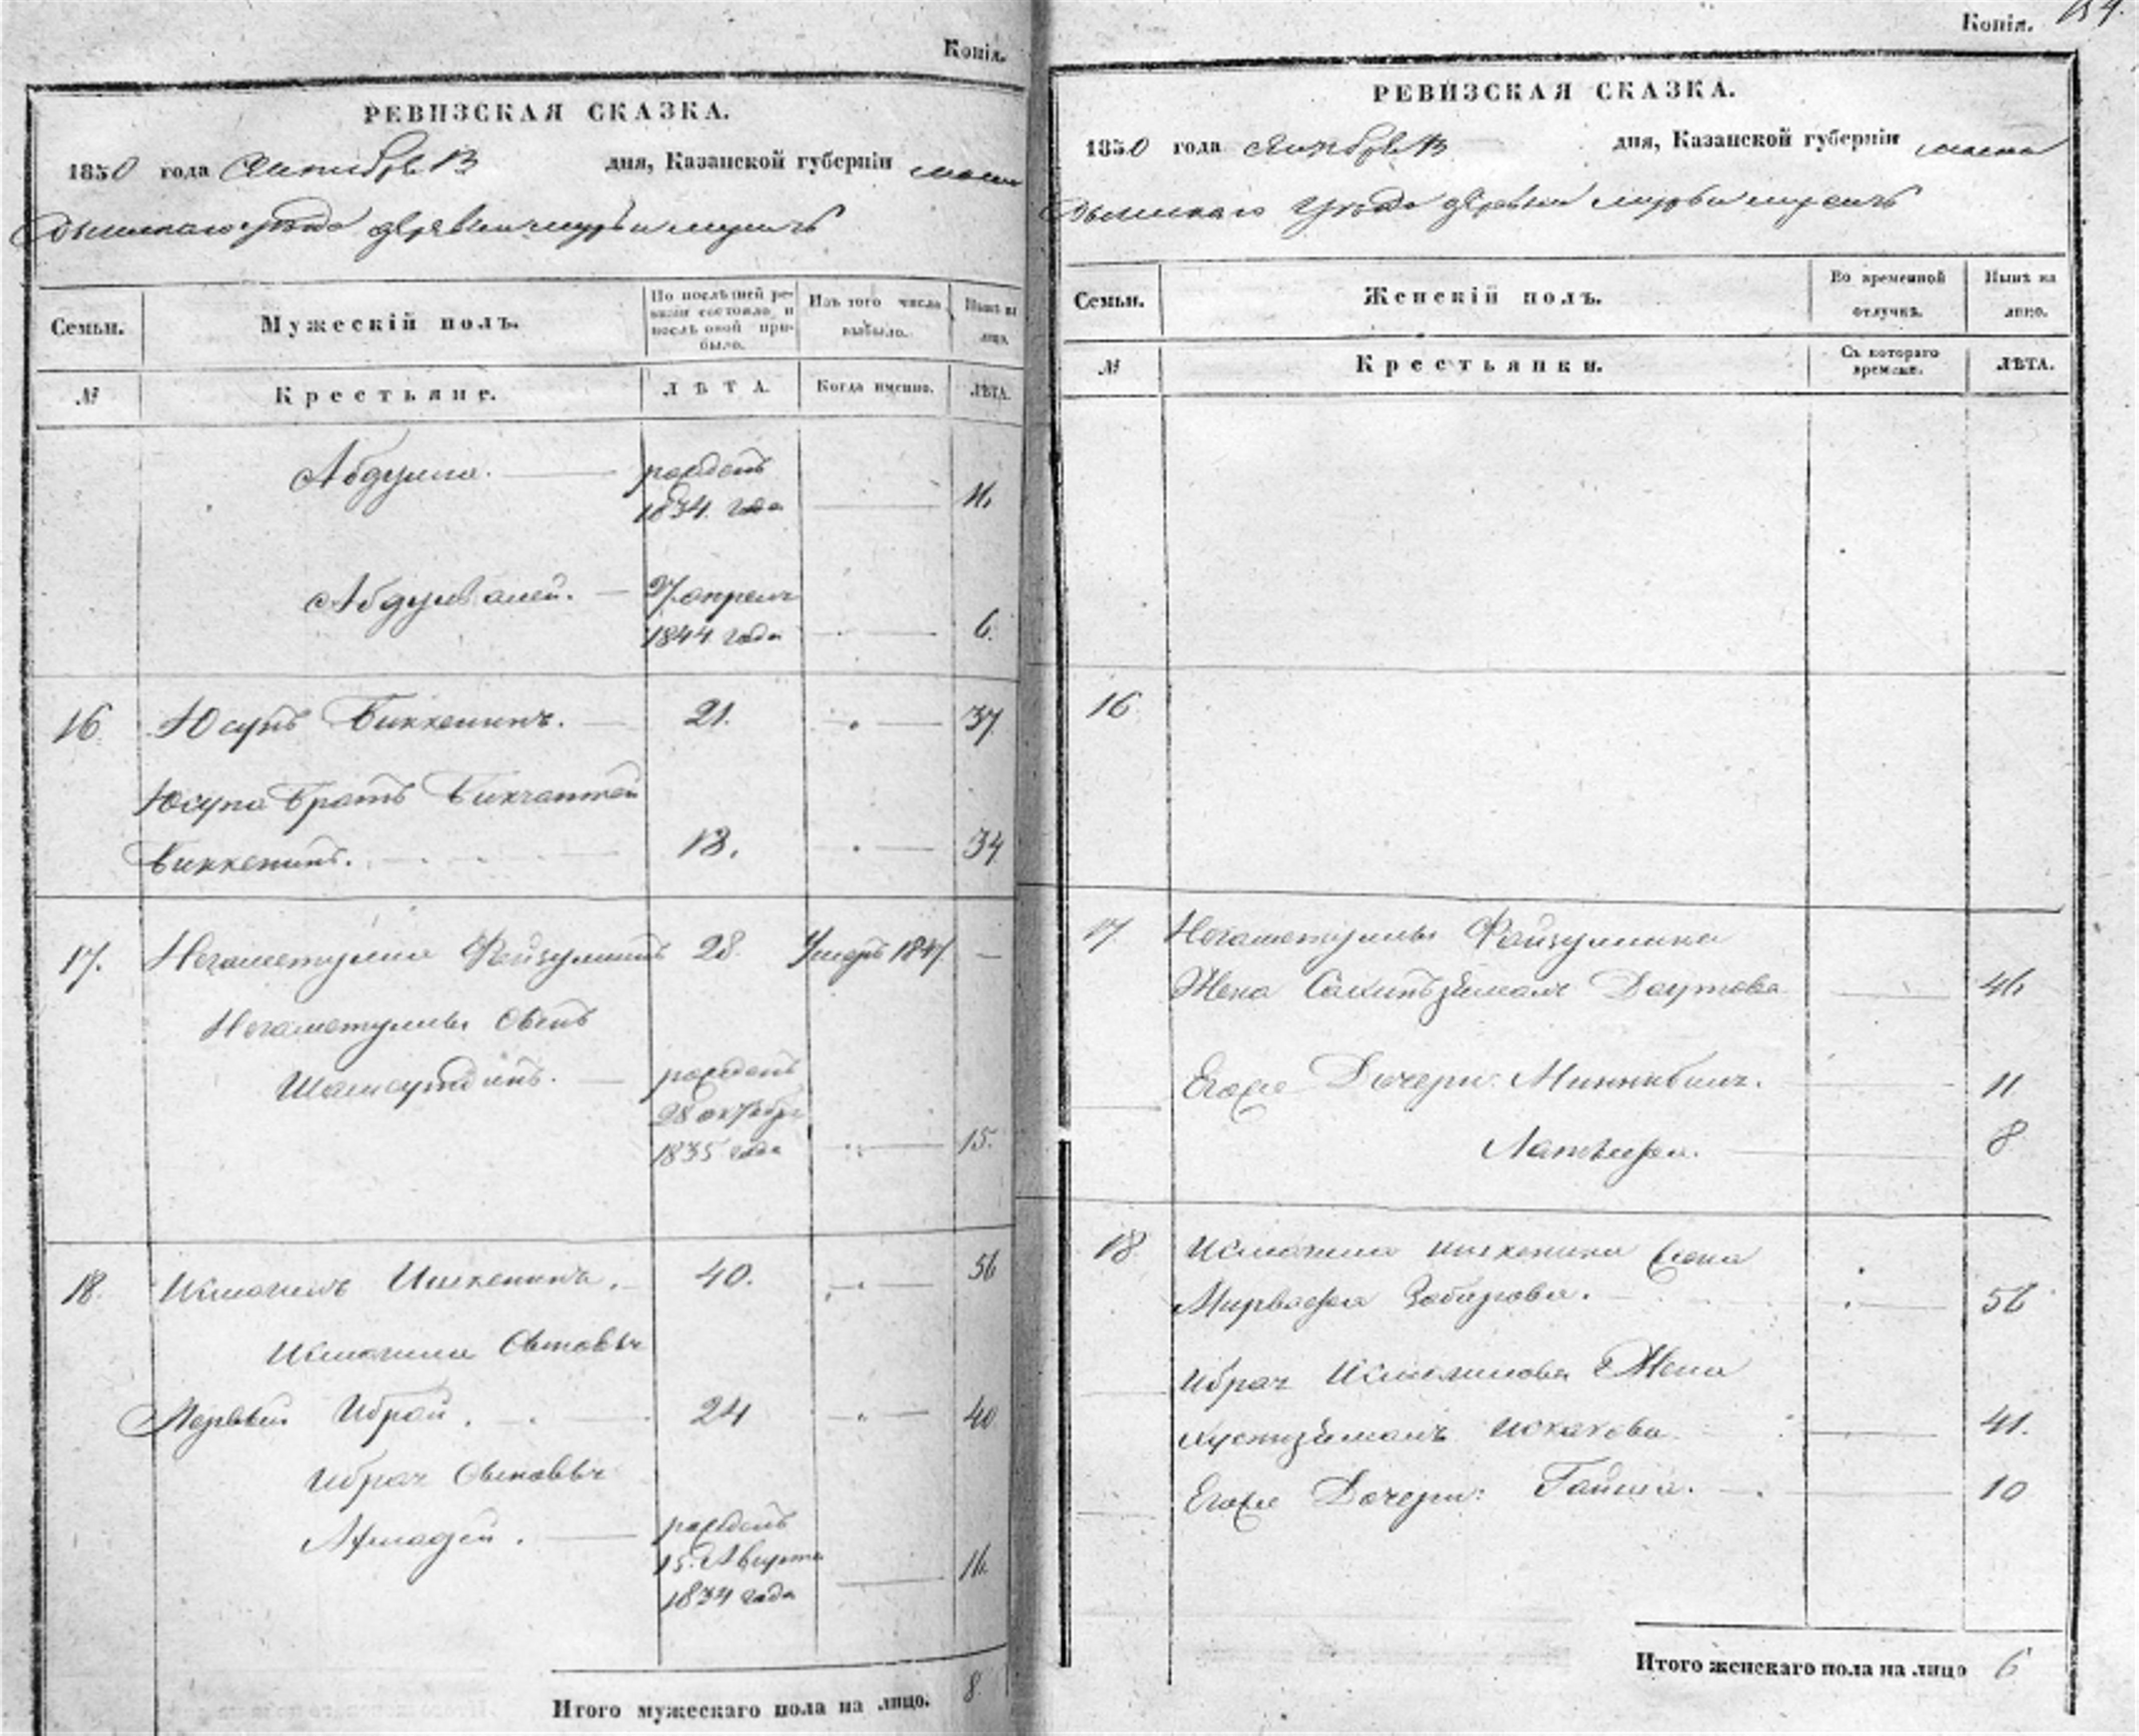 Копія.
РЕВИЗСКАЯ СКАЗКА.
1850 года Октября дня, Казанской губерніи
уѣзда деревни
Семьи. Мужескій полъ. По послѣдней ревизіи состояло и послѣ оной прибыло. Изъ того числа выбыло. Нынѣ на лицо.
№ Крестьяне. ЛѢТА. Когда именно. ЛѢТА.
Абдулла. рожденъ
1834 года 16
Абдулвалей. 27 апреля
1844 года 6.
16 Юсупъ Биккенинъ. 21. 37
Юсупа братъ
Биккенинъ. 18. 34
17. Негаметулла Файзуллинъ 28. Умеръ 1847 —
Негаметуллы Сынъ
Шамсутдинъ. рожденъ
28 октября
1835 года 15.
18. Исмагилъ Ишкенинъ. 40. 56
Исмагила Сыновья
Первый Ибрай. 24 40
Ибрая Сыновья
Ахмадей. рожденъ
15 Августа
1834 года 16.
Итого мужескаго пола на лицо. 8.
Копія.
РЕВИЗСКАЯ СКАЗКА.
1850 года Октября дня, Казанской губерніи
уѣзда деревни
Семьи. Женскій полъ. Во временной отлучкѣ. Нынѣ на лицо.
№ Крестьянки. Съ котораго времени. ЛѢТА.
16
17. Негаметуллы Файзуллина
Жена Даутова 46
Егоже Дочери: 11
8
18 Исмагила Ишкенина жена
Забирова. 56
Ибрая Исмагилова Жена
Исхакова 41.
Егоже Дочери: Гайша. 10
Итого женскаго пола на лицо 6